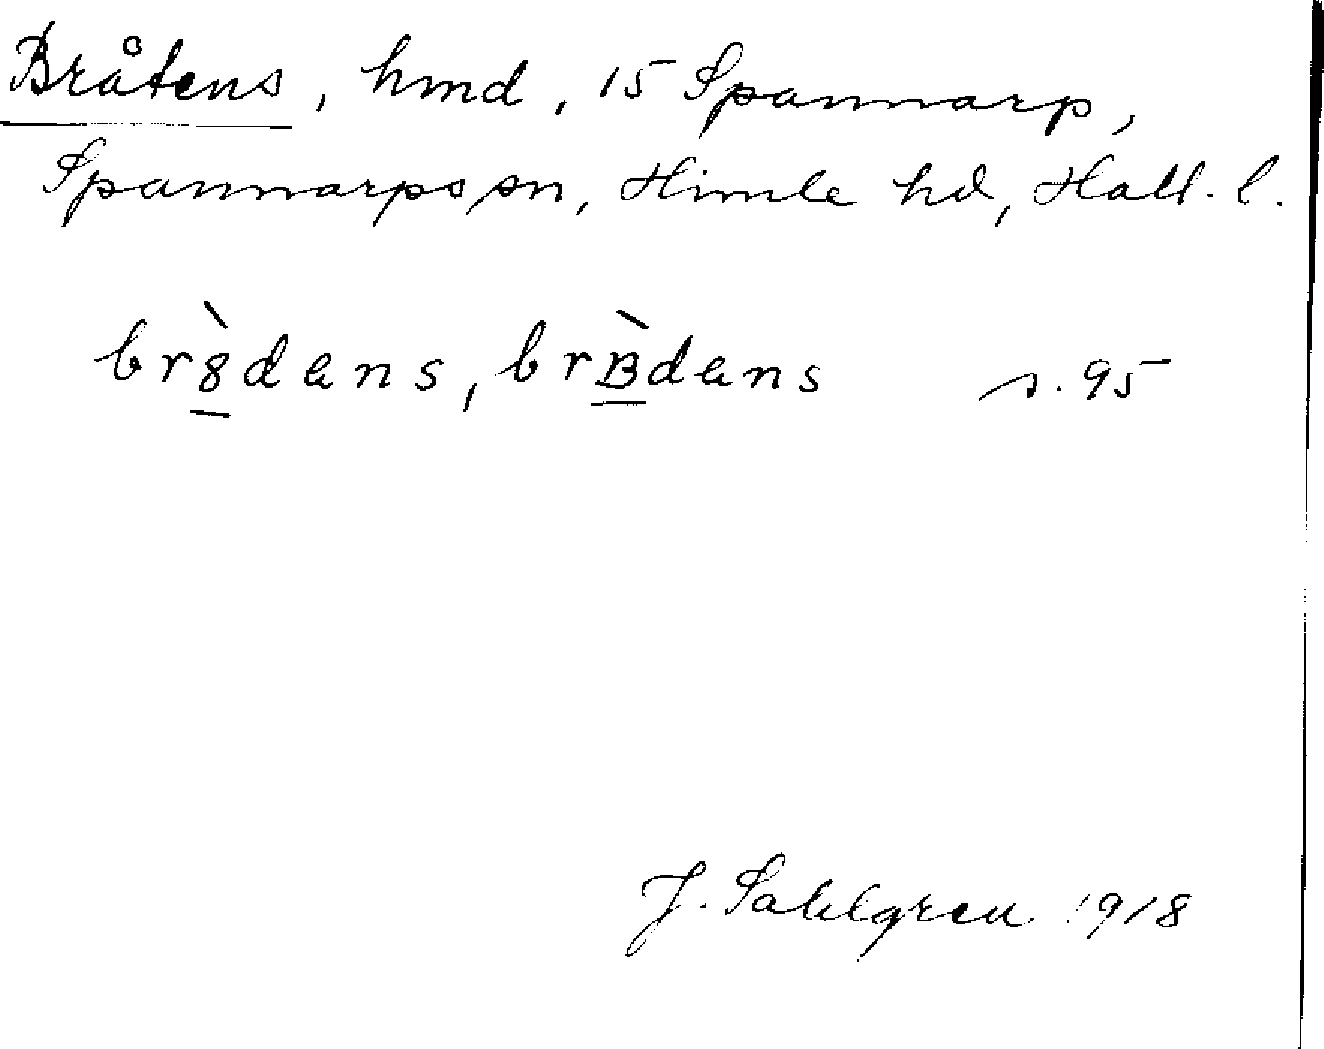 Bråtens, hmd, 15 Spannarp,
Spannarps sn, Himle hd, Hall. l.
br8̲̀dens, brB̲̀dens s. 95
J. Sahlgren 1918